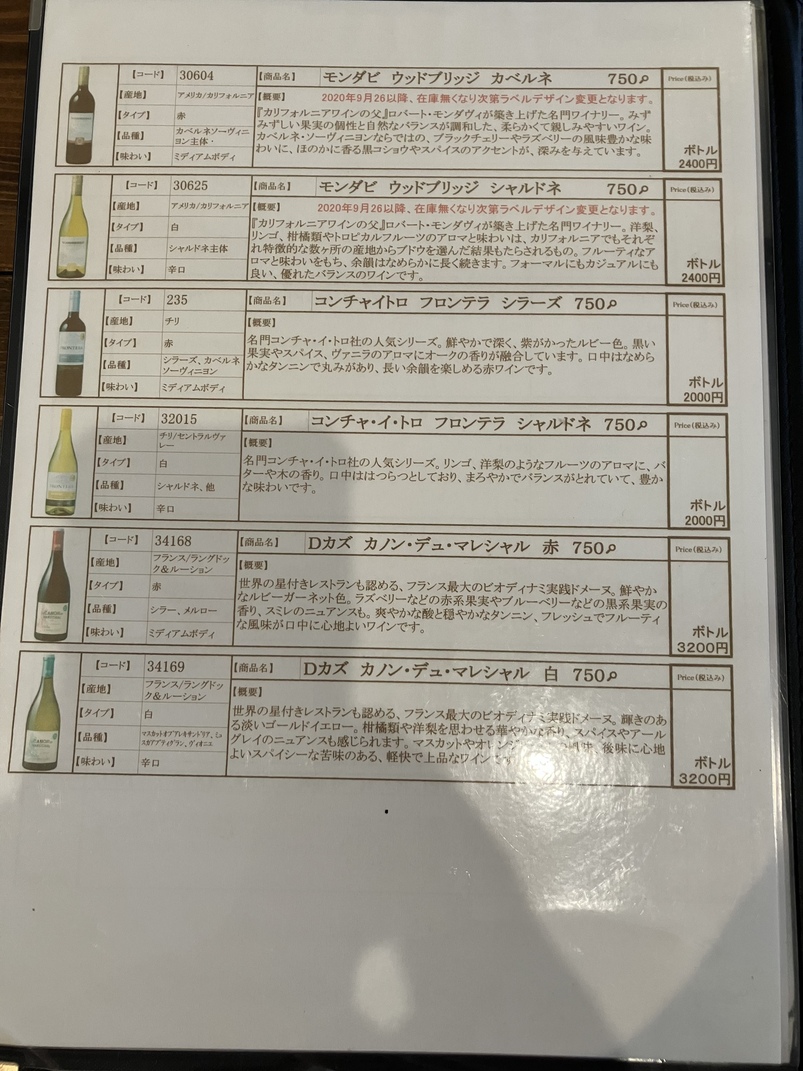 【コード】 30604 【商品名】 モンダビ ウッドブリッジ カベルネ 750㎖ Price(税込み)
【産地】 アメリカ/カリフォルニア 【概要】 2020年9月26以降、在庫無くなり次第ラベルデザイン変更となります。
【タイプ】 赤
【品種】 カベルネソーヴィニ
ヨン主体・
【味わい】 ミディアムボディ
『カリフォルニアワインの父』ロバート・モンダヴィが築き上げた名門ワイナリー。みず
みずしい果実の個性と自然なバランスが調和した、柔らかくて親しみやすいワイン。
カベルネ・ソーヴィニヨンならではの、ブラックチェリーやラズベリーの風味豊かな味
わいに、ほのかに香る黒コショウやスパイスのアクセントが、深みを与えています。
ボトル
2400円
【コード】 30625 【商品名】 モンダビ ウッドブリッジ シャルドネ 750㎖ Price(税込み)
【産地】 アメリカ/カリフォルニア 【概要】 2020年9月26以降、在庫無くなり次第ラベルデザイン変更となります。
【タイプ】 白
【品種】 シャルドネ主体
【味わい】 辛口
『カリフォルニアワインの父』ロバート・モンダヴィが築き上げた名門ワイナリー。洋梨、
リンゴ、柑橘類やトロピカルフルーツのアロマと味わいは、カリフォルニアでもそれぞ
れ特徴的な数ヶ所の産地からブドウを選んだ結果もたらされるもの。フルーティなア
ロマと味わいをもち、余韻はなめらかに長く続きます。フォーマルにもカジュアルにも
良い、優れたバランスのワインです。
ボトル
2400円
【コード】 235 【商品名】 コンチャイトロ フロンテラ シラーズ 750㎖ Price(税込み)
【産地】 チリ 【概要】
【タイプ】 赤
【品種】 シラーズ、カベルネ
ソーヴィニヨン
【味わい】 ミディアムボディ
名門コンチャ・イ・トロ社の人気シリーズ。鮮やかで深く、紫がかったルビー色。黒い
果実やスパイス、ヴァニラのアロマにオークの香りが融合しています。口中はなめら
かなタンニンで丸みがあり、長い余韻を楽しめる赤ワインです。
ボトル
2000円
【コード】 32015 【商品名】 コンチャ・イ・トロ フロンテラ シャルドネ 750㎖ Price(税込み)
【産地】 チリ/セントラルヴァ
レー 【概要】
【タイプ】 白
【品種】 シャルドネ、他
【味わい】 辛口
名門コンチャ・イ・トロ社の人気シリーズ。リンゴ、洋梨のようなフルーツのアロマに、バ
ターや木の香り。口中ははつらつとしており、まろやかでバランスがとれていて、豊か
な味わいです。
ボトル
2000円
【コード】 34168 【商品名】 Dカズ カノン・デュ・マレシャル 赤 750㎖ Price(税込み)
【産地】 フランス/ラングドッ
ク＆ルーション 【概要】
【タイプ】 赤
【品種】 シラー、メルロー
【味わい】 ミディアムボディ
世界の星付きレストランも認める、フランス最大のビオディナミ実践ドメーヌ。鮮やか
なルビーガーネット色。ラズベリーなどの赤系果実やブルーベリーなどの黒系果実の
香り、スミレのニュアンスも。爽やかな酸と穏やかなタンニン、フレッシュでフルーティ
な風味が口中に心地よいワインです。
ボトル
3200円
【コード】 34169 【商品名】 Dカズ カノン・デュ・マレシャル 白 750㎖ Price(税込み)
【産地】 フランス/ラングドッ
ク＆ルーション 【概要】
【タイプ】 白
【品種】 マスカットオブアレキサンドリア、ミュ
スカアプティグラン、ヴィオニエ
【味わい】 辛口
世界の星付きレストランも認める、フランス最大のビオディナミ実践ドメーヌ。輝きのあ
る淡いゴールドイエロー。柑橘類や洋梨を思わせる華やかな香り、スパイスやアール
グレイのニュアンスも感じられます。マスカットやオレンジ 後味に心地
よいスパイシーな苦味のある、軽快で上品なワインです
ボトル
3200円